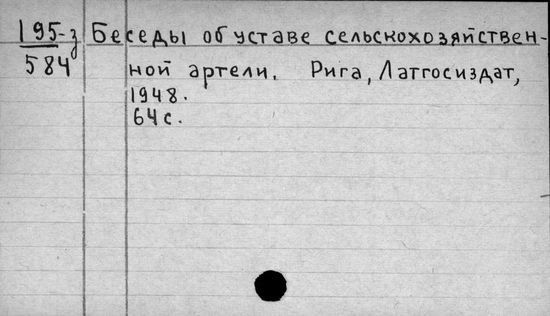 195-з Беседы об уставе сельскохозяйствен-
584 ной артели. Рига, Латгосиздат,
1948.
64 с.